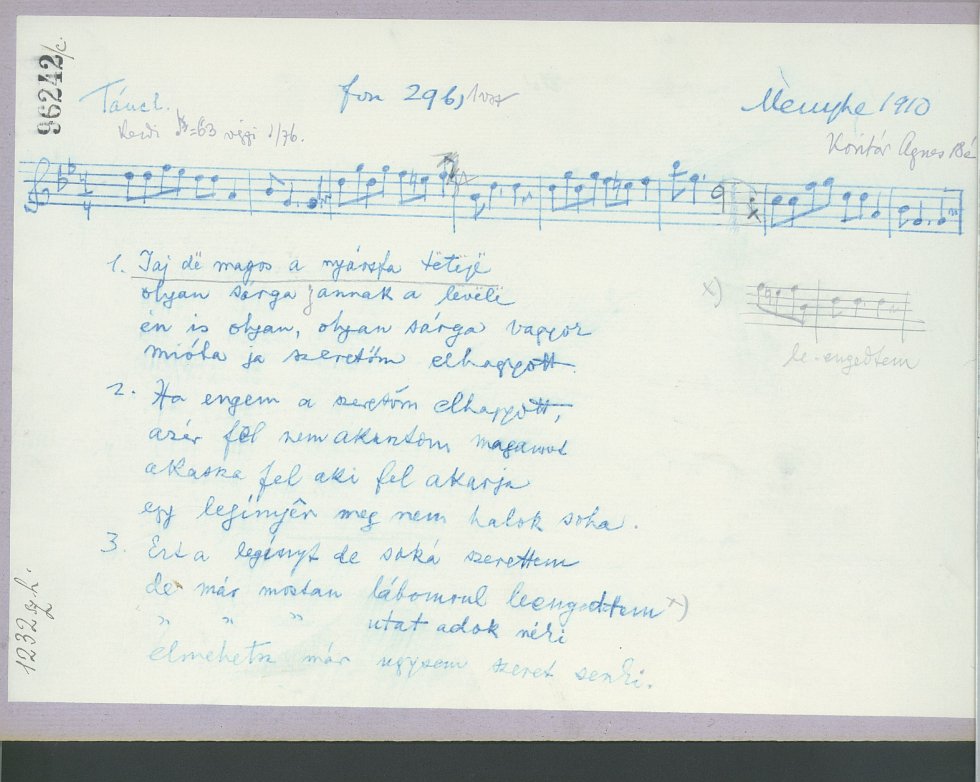 96242/c.
Táncl. fon 296, 1vsz Menyhe 1910
♪=63 végzi 1/76.
Ágnes
1. Jaj dë magos a nyársfa tëtejë
olyan sárga jannak a levële
én is olyan, olyan sárga vagyok
mióta ja szeretőm elhagyott.
2. Ha engem a szeretőm elhagyott,
azér föl nem akasztom magamot
akassza fel aki fel akarja
egy legényér meg nem halok soha.
3. Ezt a legényt de soká szerettem
de már mostan lábomrul leengedtem x)
" " " utat adok néki
elmehetsz már ugysem szeret senki.
x)
le-engedtem
1232 gy.h.